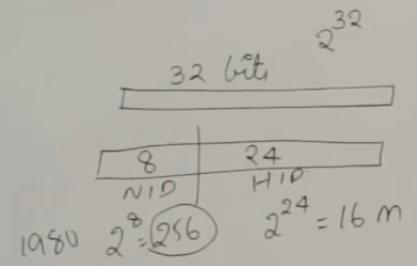 2^32
32 bits
8 24
NID HID
1980 2^8=256 2^24=16 m